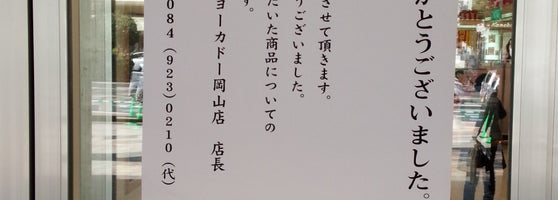 がとうございました。
させて頂きます。
うございました。
だいた商品についての
す。
ヨーカドー岡山店 店長
084(923)0210(代)